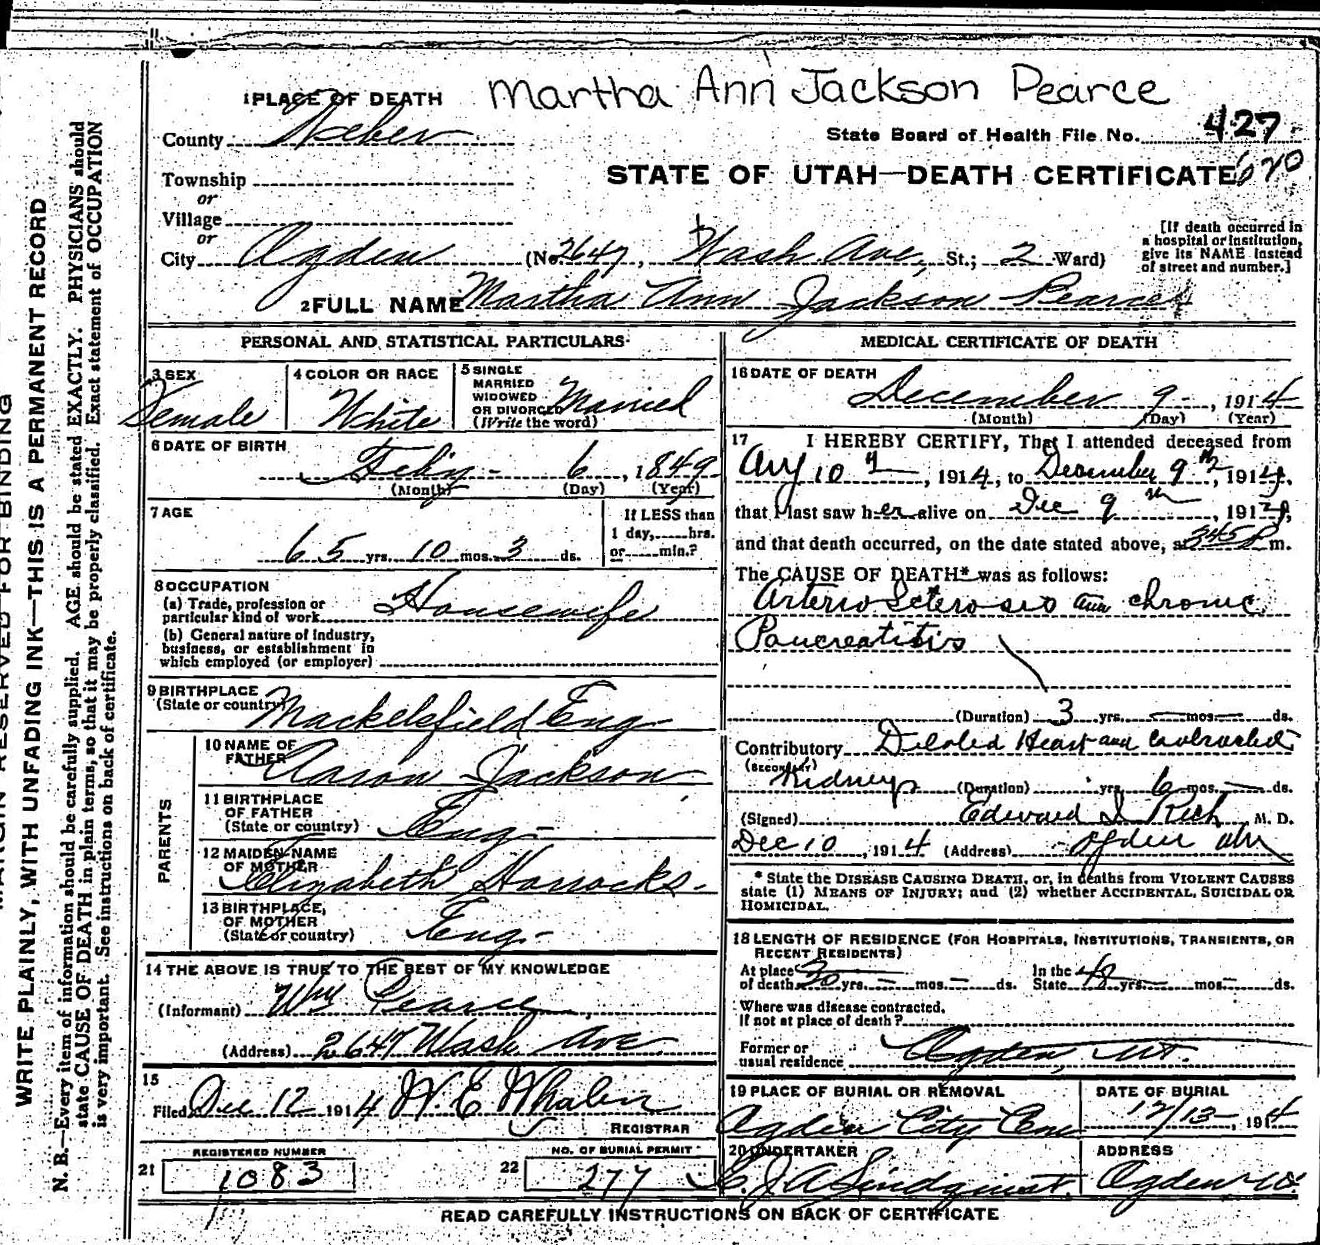 Martha Ann Jackson Pearce
1 PLACE OF DEATH
County Weber
State Board of Health File No. 427
670
Township
or
STATE OF UTAH—DEATH CERTIFICATE
Village
or
City Ogden (No. 2647, Wash Ave, St.; 2 Ward)
[If death occurred in a hospital or institution, give its NAME instead of street and number.]
2 FULL NAME Martha Ann Jackson Pearce
PERSONAL AND STATISTICAL PARTICULARS
3 SEX
Female
4 COLOR OR RACE
White
5 SINGLE
MARRIED
WIDOWED
OR DIVORCED Married
(Write the word)
6 DATE OF BIRTH
Feby - 6, 1849
(Month) (Day) (Year)
7 AGE
65 yrs. 10 mos. 3 ds.
If LESS than
1 day,......hrs.
or......min.?
8 OCCUPATION
(a) Trade, profession or
particular kind of work Housewife
(b) General nature of industry,
business, or establishment in
which employed (or employer)
9 BIRTHPLACE
(State or country) Mackelsfield Eng
PARENTS
10 NAME OF
FATHER Aaron Jackson
11 BIRTHPLACE
OF FATHER
(State or country) Eng-
12 MAIDEN NAME
OF MOTHER Elizabeth Horrocks.
13 BIRTHPLACE,
OF MOTHER
(State or country) Eng.-
14 THE ABOVE IS TRUE TO THE BEST OF MY KNOWLEDGE
(Informant) Wm Pearce
(Address) 2647 Wash Ave
15
Filed Dec 12 1914 W. E. Whalen
REGISTRAR
REGISTERED NUMBER
21 1083
NO. OF BURIAL PERMIT
22 277
MEDICAL CERTIFICATE OF DEATH
16 DATE OF DEATH
December 9-, 1914
(Month) (Day) (Year)
17 I HEREBY CERTIFY, That I attended deceased from
Aug 10th, 1914, to December 9th, 1914,
that I last saw her alive on Dec 9th, 1914,
and that death occurred, on the date stated above, at 345 P m.
The CAUSE OF DEATH* was as follows:
Arterio Sclerosis and chronic
Pancreatitis
(Duration) 3 yrs. — mos. — ds.
Contributory Dilated Heart and Contracted
(SECONDARY)
Kidneys (Duration) yrs. 6 mos. — ds.
(Signed) Edward I Rich M. D.
Dec 10, 1914 (Address) Ogden Utah
* State the DISEASE CAUSING DEATH, or, in deaths from VIOLENT CAUSES
state (1) MEANS OF INJURY; and (2) whether ACCIDENTAL, SUICIDAL OR
HOMICIDAL.
18 LENGTH OF RESIDENCE (FOR HOSPITALS, INSTITUTIONS, TRANSIENTS, OR
RECENT RESIDENTS)
At place
of death 30 yrs. — mos. — ds.
In the
State 48 yrs. — mos. — ds.
Where was disease contracted,
If not at place of death?
Former or
usual residence Ogden, Ut.
19 PLACE OF BURIAL OR REMOVAL
Ogden City Cem
DATE OF BURIAL
12/13-, 1914
20 UNDERTAKER
J A Lindquist.
ADDRESS
Ogden Ut.
READ CAREFULLY INSTRUCTIONS ON BACK OF CERTIFICATE
WRITE PLAINLY, WITH UNFADING INK—THIS IS A PERMANENT RECORD
N. B.—Every item of information should be carefully supplied. AGE should be stated EXACTLY. PHYSICIANS should
state CAUSE OF DEATH in plain terms, so that it may be properly classified. Exact statement of OCCUPATION
is very important. See instructions on back of certificate.
MARGIN RESERVED FOR BINDING